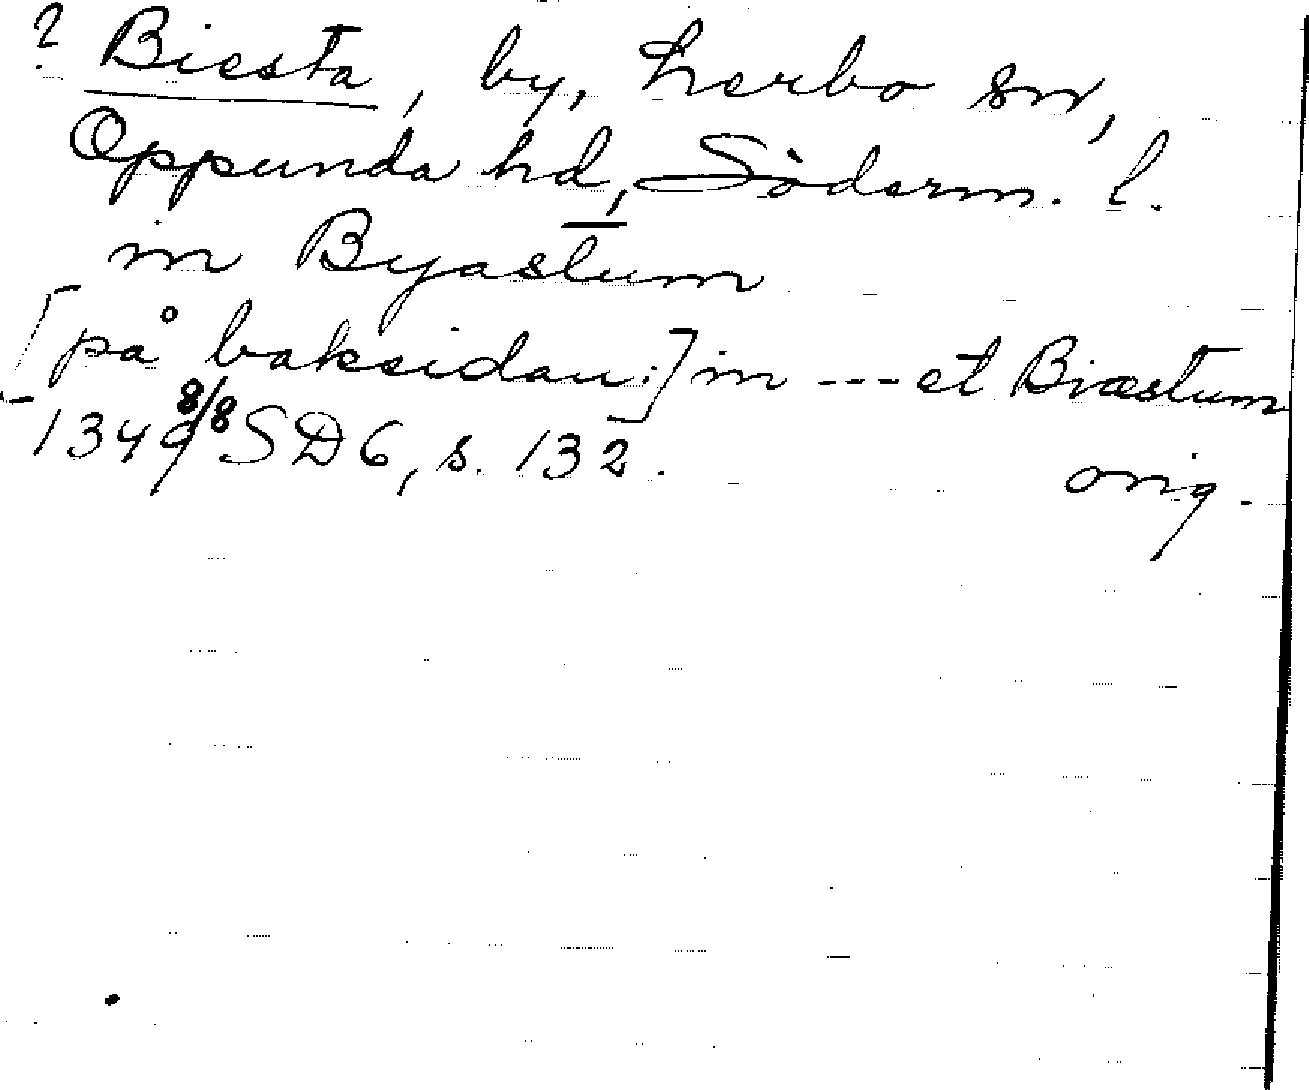 ? Biesta, by, Lerbo sn,
Oppunda hd, Söderm. l.
in Byastum
[på baksidan:] in --- et Biæstum
1349 8/8 SD6, s. 132. orig.